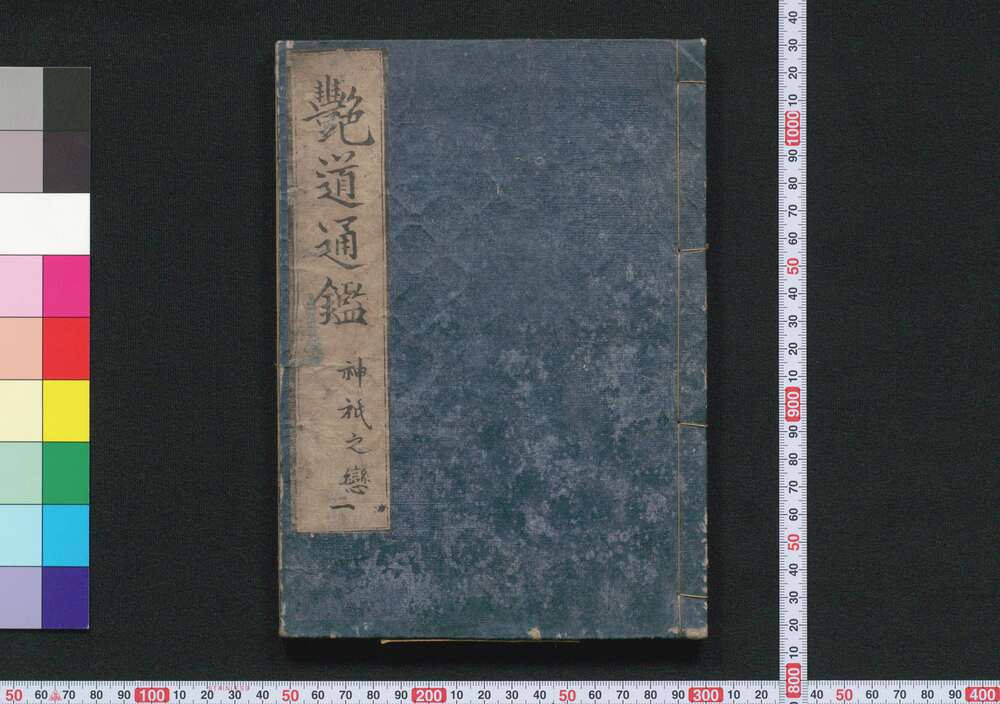 艷道通鑑
神祇之戀
二
40
30
20
10
1000
90
80
70
60
50
40
30
20
10
900
90
80
70
60
50
40
30
20
10
800
50 60 70 80 90 100 10 20 30 40 50 60 70 80 90 200 10 20 30 40 50 60 70 80 90 300 10 20 30 40 50 60 70 80 90 400
STAINLESS